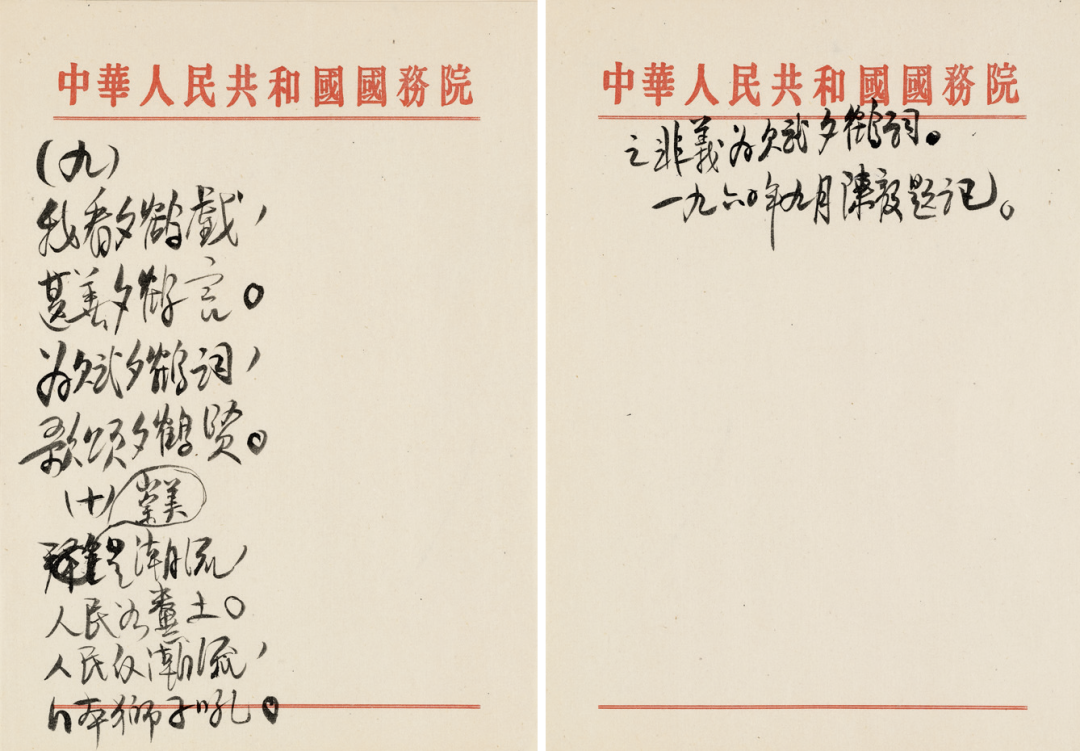 中華人民共和國國務院
(九)
我看夕鶴戲，
甚美夕鶴言。
為賦夕鶴詞，
歌頌夕鶴賢。
(十)
崇美
是潮流，
人民如糞土。
人民反潮流，
日本獅子吼。
中華人民共和國國務院
之非義為賦夕鶴詞。
一九六〇年九月陳毅題記。